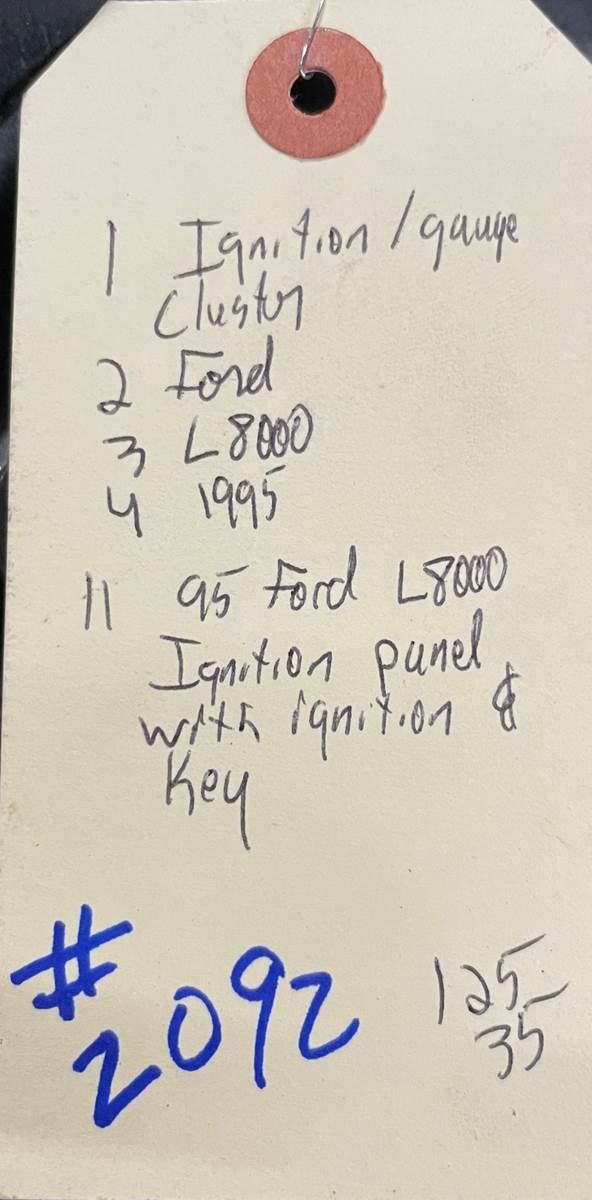 1 Ignition/gauge
Cluster
2 Ford
3 L8000
4 1995
11 95 Ford L8000
Ignition panel
with ignition &
Key
#2092
125
35